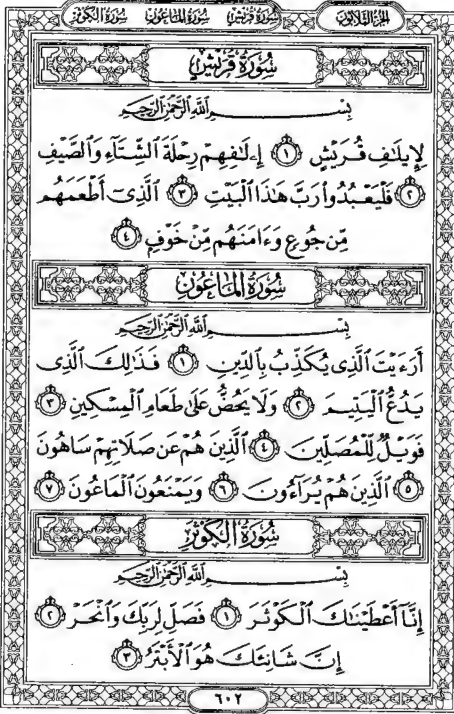 الجزء الثلاثون سورة قريش سورة الماعون سورة الكوثر
سُورَةُ قُرَيْشٍ
بِسْمِ ٱللَّهِ ٱلرَّحْمَٰنِ ٱلرَّحِيمِ
لِإِيلَٰفِ قُرَيْشٍ ١ إِۦلَٰفِهِمْ رِحْلَةَ ٱلشِّتَآءِ وَٱلصَّيْفِ
٢ فَلْيَعْبُدُوا۟ رَبَّ هَٰذَا ٱلْبَيْتِ ٣ ٱلَّذِىٓ أَطْعَمَهُم
مِّن جُوعٍ وَءَامَنَهُم مِّنْ خَوْفٍۭ ٤
سُورَةُ المَاعُونِ
بِسْمِ ٱللَّهِ ٱلرَّحْمَٰنِ ٱلرَّحِيمِ
أَرَءَيْتَ ٱلَّذِى يُكَذِّبُ بِٱلدِّينِ ١ فَذَٰلِكَ ٱلَّذِى
يَدُعُّ ٱلْيَتِيمَ ٢ وَلَا يَحُضُّ عَلَىٰ طَعَامِ ٱلْمِسْكِينِ ٣
فَوَيْلٌ لِّلْمُصَلِّينَ ٤ ٱلَّذِينَ هُمْ عَن صَلَاتِهِمْ سَاهُونَ
٥ ٱلَّذِينَ هُمْ يُرَآءُونَ ٦ وَيَمْنَعُونَ ٱلْمَاعُونَ ٧
سُورَةُ الكَوْثَرِ
بِسْمِ ٱللَّهِ ٱلرَّحْمَٰنِ ٱلرَّحِيمِ
إِنَّآ أَعْطَيْنَٰكَ ٱلْكَوْثَرَ ١ فَصَلِّ لِرَبِّكَ وَٱنْحَرْ ٢
إِنَّ شَانِئَكَ هُوَ ٱلْأَبْتَرُ ٣
٦٠٢